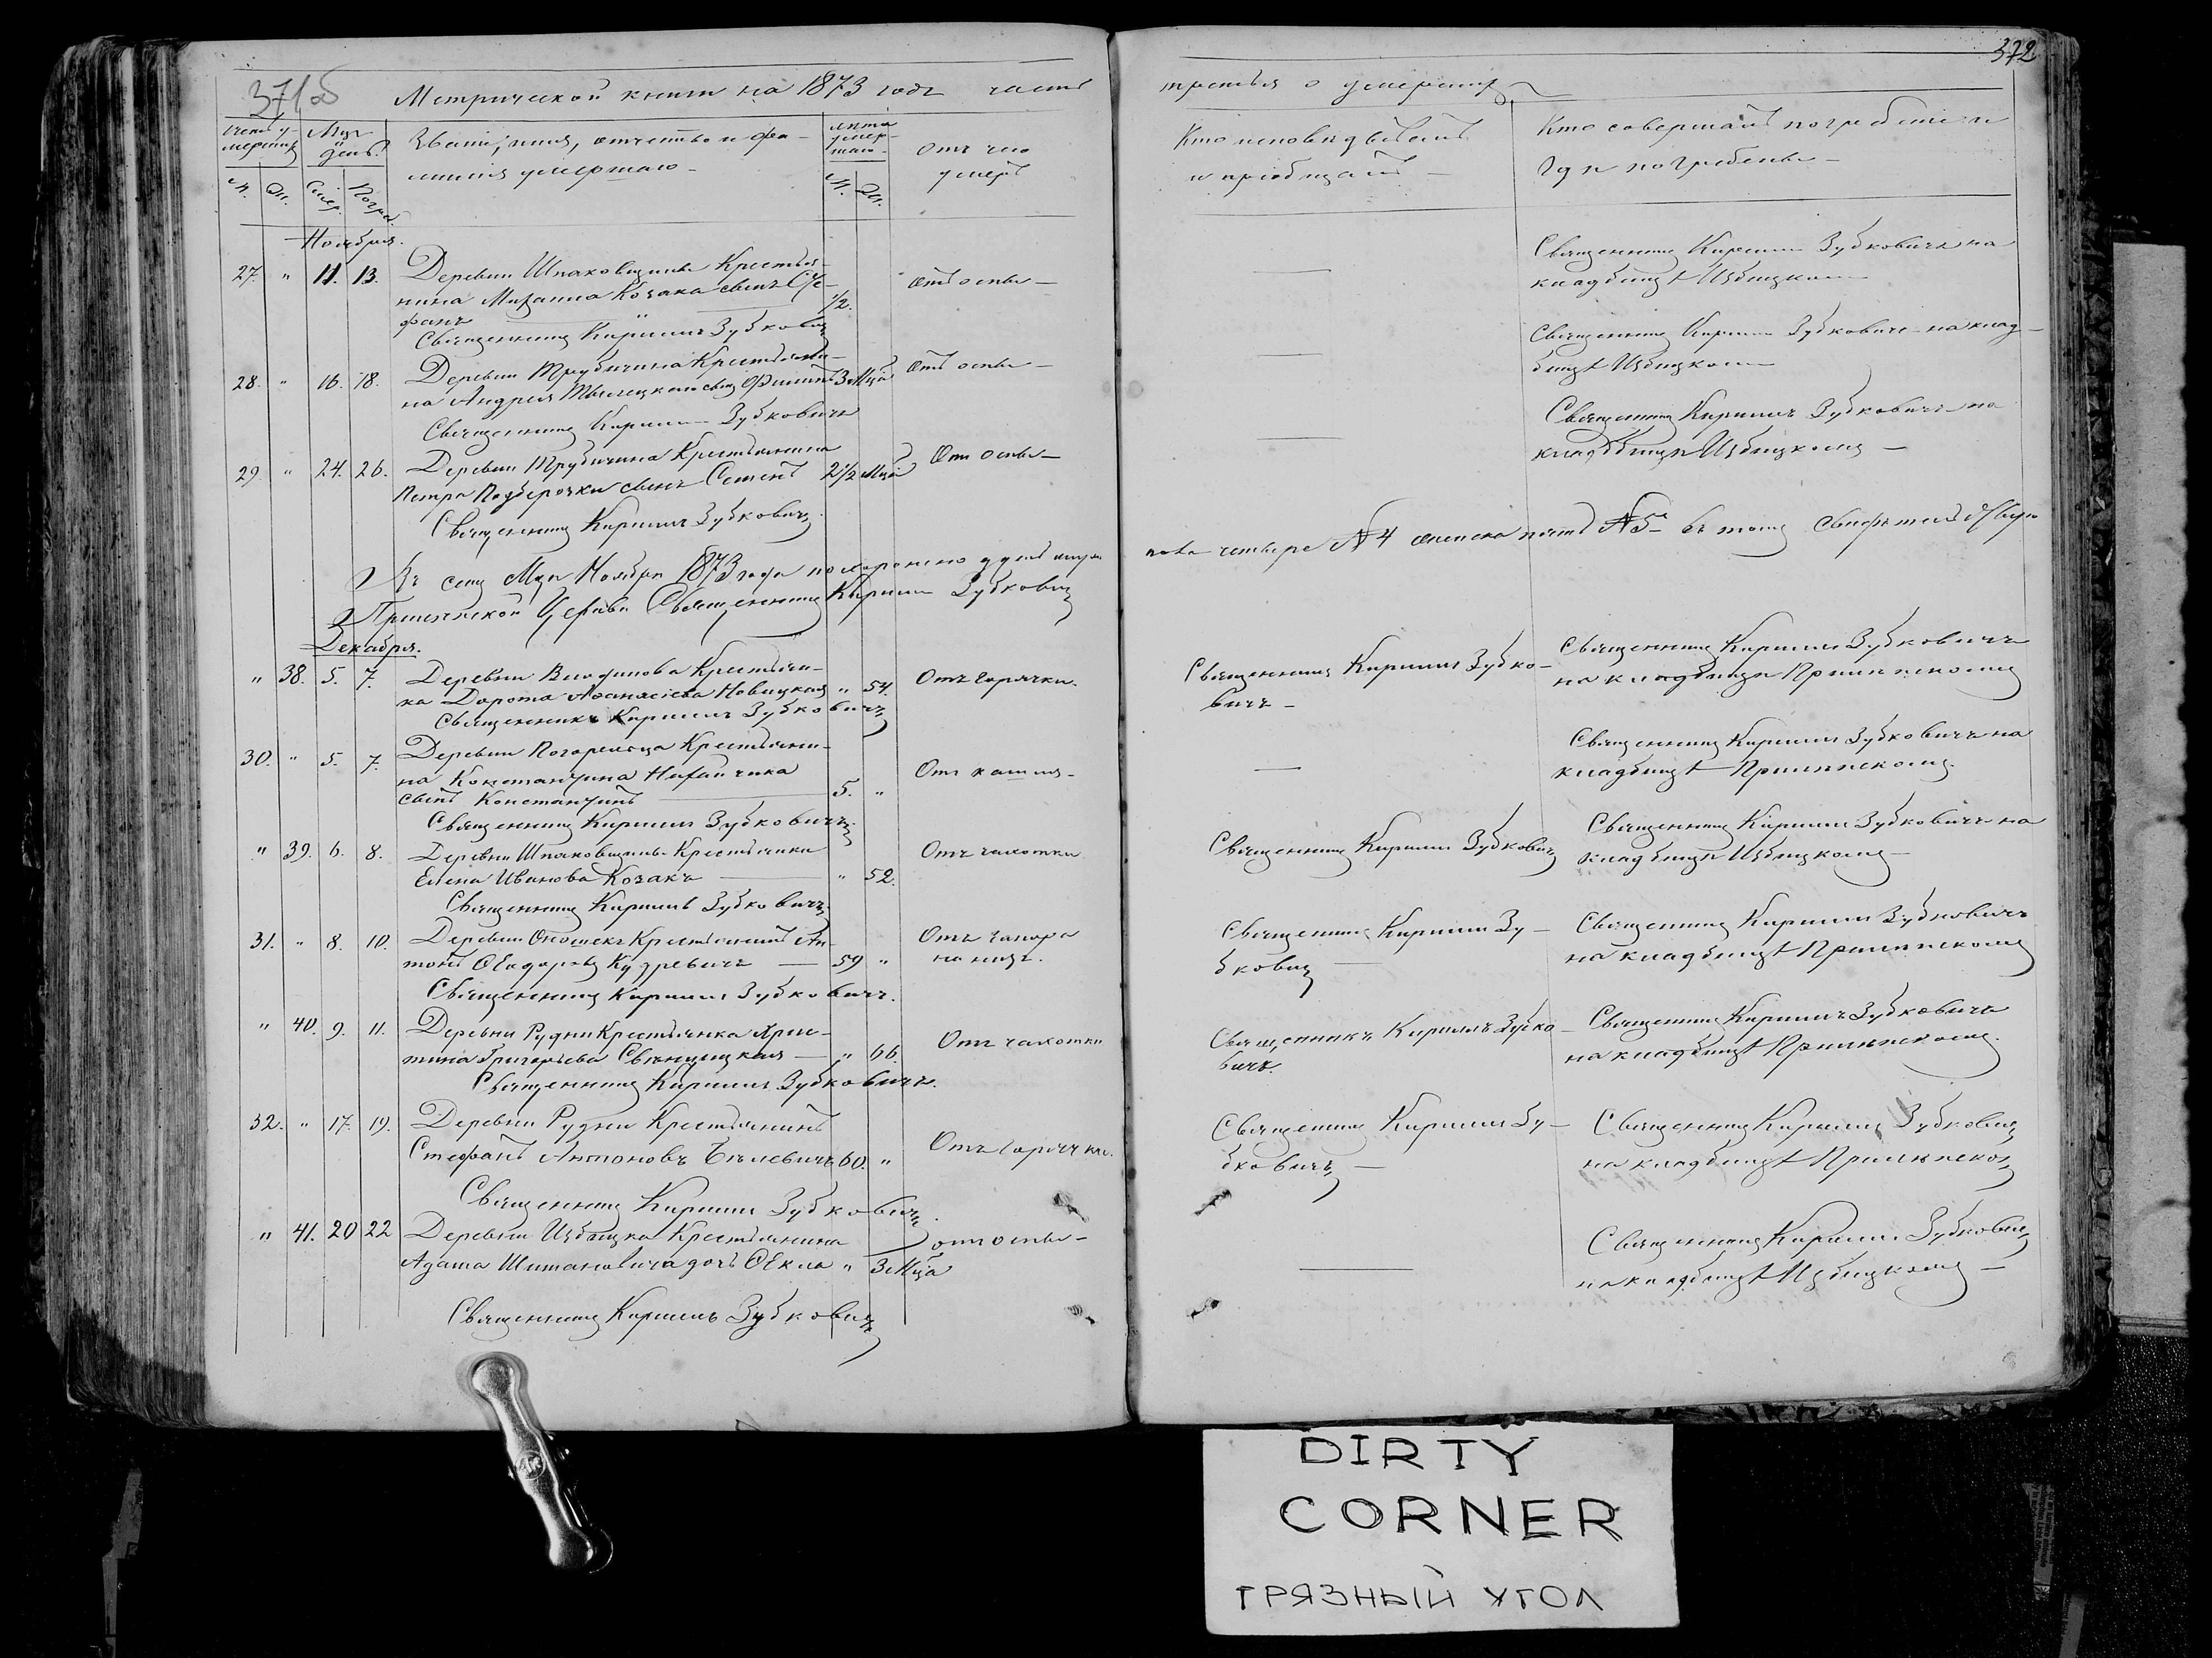 371об
Метрической книги на 1873 годъ часть
третья о умершихъ
372
Мцъ
день.
Званіе, имя, отчество и фа-
милія умершаго -
лѣта
умер-
шаго -
отъ чего
умеръ
Кто исповѣдывалъ
и пріобщалъ -
Кто совершалъ погребеніе и
гдѣ погребены -
М. Ж. М. Ж.
Ноября.
27. " 11. 13. Деревни Шпаковщины Крестья-
нина Михаила Козака сынъ Сте-
фанъ 1/2. отъ оспы -
Священникъ Кириллъ Зубковичъ на
кладбищѣ Избицкомъ
Священникъ Кириллъ Зубковичъ
28. " 16. 18. Деревни Трубичина Крестьяни-
на Андрея сынъ Филипъ 3 Мца отъ оспы -
Священникъ Кириллъ Зубковичъ на клад-
бищѣ Избицкомъ
Священникъ Кириллъ Зубковичъ
29 " 24. 26. Деревни Трубичина Крестьянина
Петра Подберочки сынъ Семенъ 2 1/2 Мца Отъ оспы -
Священникъ Кириллъ Зубковичъ на
кладбищѣ Избицкомъ -
Священникъ Кириллъ Зубковичъ.
Въ семъ Мцѣ Ноябрѣ 1873 года похоронено душъ мужеска четыре № 4 женска пять № 5 въ томъ свидѣтельствую
Священникъ Кириллъ Зубковичъ
Декабря.
" 38. 5. 7. Деревни Крестьян-
ка Дорота Аѳанасіева Новицкая " 54. Отъ горячки.
Священникъ Кириллъ Зубко-
вичъ -
Священникъ Кириллъ Зубковичъ
на кладбищѣ Прилѣпскомъ
Священникъ Кириллъ Зубковичъ
30. " 5. 7. Деревни Погорельца Крестьяни-
на Константина Нихайчика
сынъ Константинъ 5. " Отъ кашля -
Священникъ Кириллъ Зубковичъ на
кладбищѣ Прилѣпскомъ.
Священникъ Кириллъ Зубковичъ
" 39. 6. 8. Деревни Шпаковщины Крестьянка
Елена Иванова Козакъ " 52. Отъ чахотки
Священникъ Кириллъ Зубковичъ
Священникъ Кириллъ Зубковичъ на
кладбищѣ Избицкомъ -
Священникъ Кириллъ Зубковичъ
31. " 8. 10. Деревни Крестьянинъ Ан-
тонъ Ѳеодоровъ Кудревичъ 59 " Отъ запора
на низъ.
Священникъ Кириллъ Зу-
бковичъ
Священникъ Кириллъ Зубковичъ
на кладбищѣ Прилѣпскомъ
Священникъ Кириллъ Зубковичъ.
" 40. 9. 11. Деревни Рудни Крестьянка Хрис-
тина Григорьева Свенцицкая " 66. Отъ чахотки
Священникъ Кириллъ Зубко-
вичъ.
Священникъ Кириллъ Зубковичъ
на кладбищѣ Прилѣпскомъ.
Священникъ Кириллъ Зубковичъ.
32. " 17. 19. Деревни Рудни Крестьянинъ
Стефанъ Антоновъ Бѣлевичъ 60. " Отъ горячки.
Священникъ Кириллъ Зу-
бковичъ
Священникъ Кириллъ Зубковичъ
на кладбищѣ Прилѣпском
Священникъ Кириллъ Зубковичъ.
" 41. 20 22 Деревни Избицка Крестьянина
Адама Шимановича дочь Ѳекла " 3 Мца отъ оспы -
Священникъ Кириллъ Зубковичъ
на кладбищѣ Избицкомъ -
Священникъ Кириллъ Зубковичъ
DIRTY
CORNER
ГРЯЗНЫЙ УГОЛ